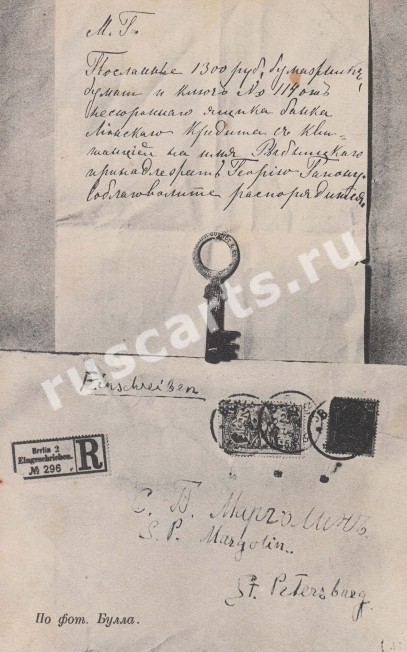 М. Г.
Посланные 1300 руб., бумажникъ,
бумаги и ключъ № 114 отъ
несгораемаго ящика банка
Ліонскаго Кредита съ кви-
танціей на имя Рыбницкаго
принадлежатъ Георгію Гапону.
Соблаговолите распорядиться.
Einschreiben
Berlin 2
Eingeschrieben.
№ 296
R
С. П. Марголинъ
S. P. Margolin.
St. Petersburg.
По фот. Булла.
ruscarts.ru